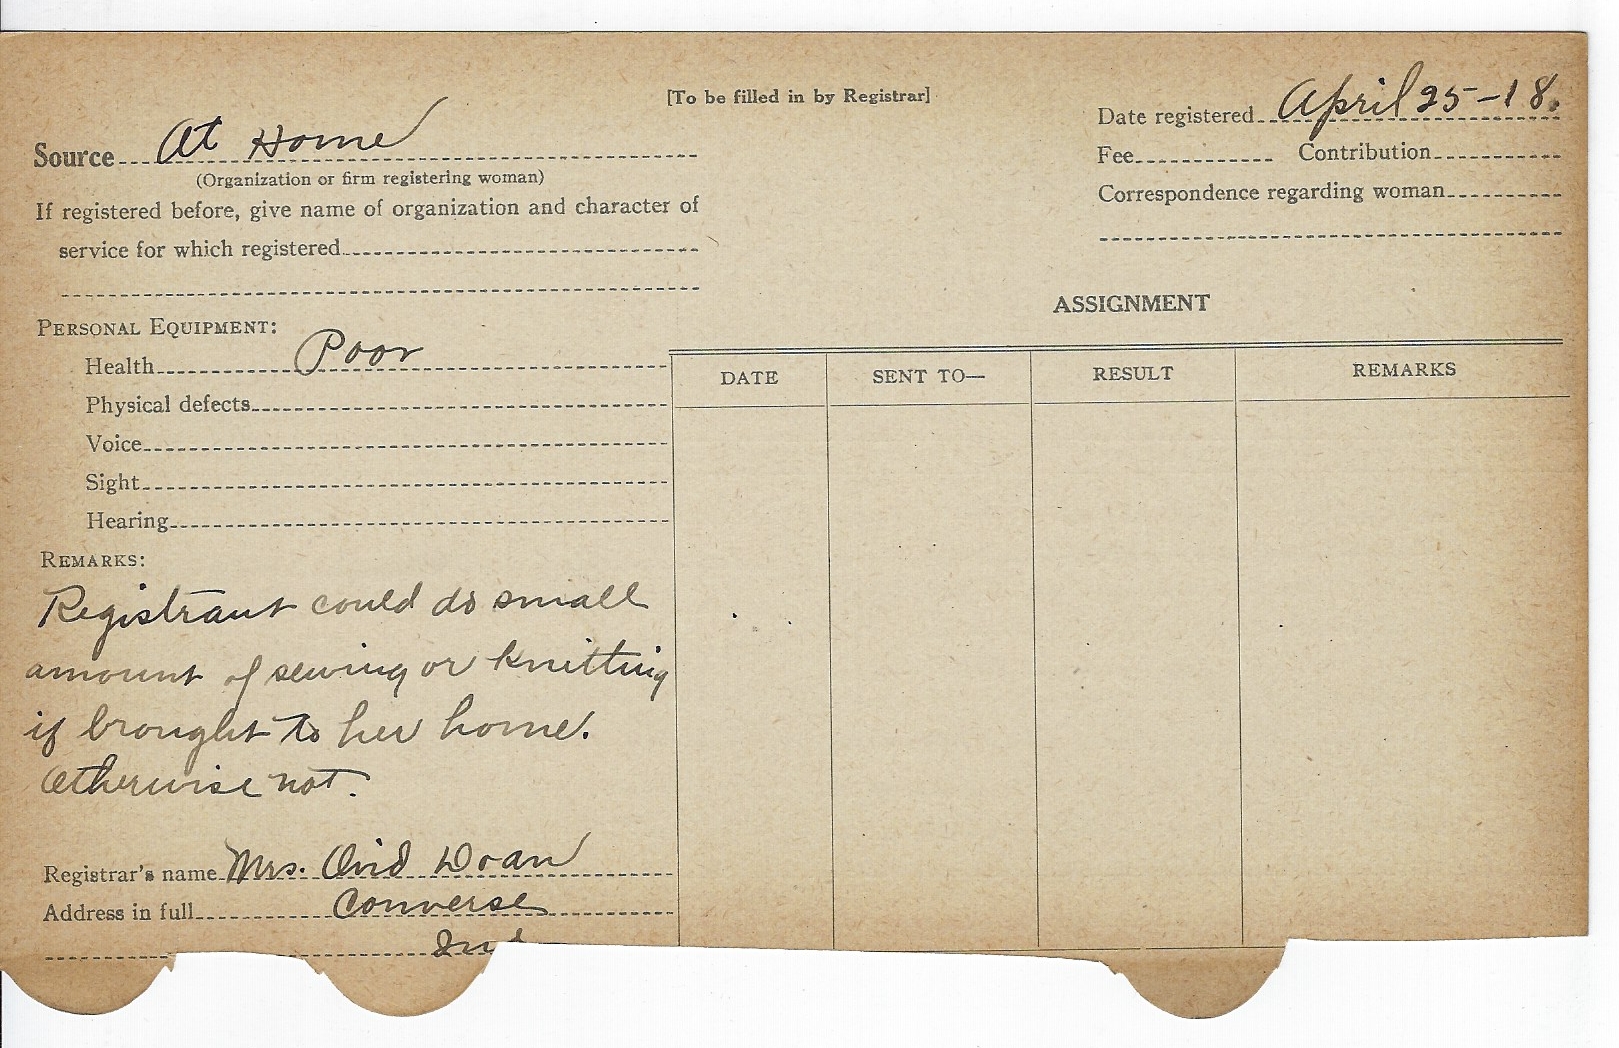 [To be filled in by Registrar]
Source At Home
(Organization or firm registering woman)
If registered before, give name of organization and character of
service for which registered
Date registered April 25-18.
Fee Contribution
Correspondence regarding woman
PERSONAL EQUIPMENT:
Health Poor
Physical defects
Voice
Sight
Hearing
REMARKS:
Registrant could do small
amount of sewing or knitting
if brought to her home.
Otherwise not.
Registrar's name Mrs. Ovid Doan
Address in full Converse
Ind
ASSIGNMENT
DATE SENT TO— RESULT REMARKS